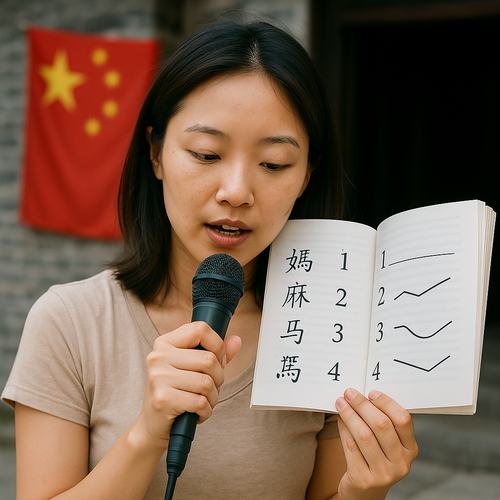 媽 1
麻 2
马 3
4
1
2
3
4